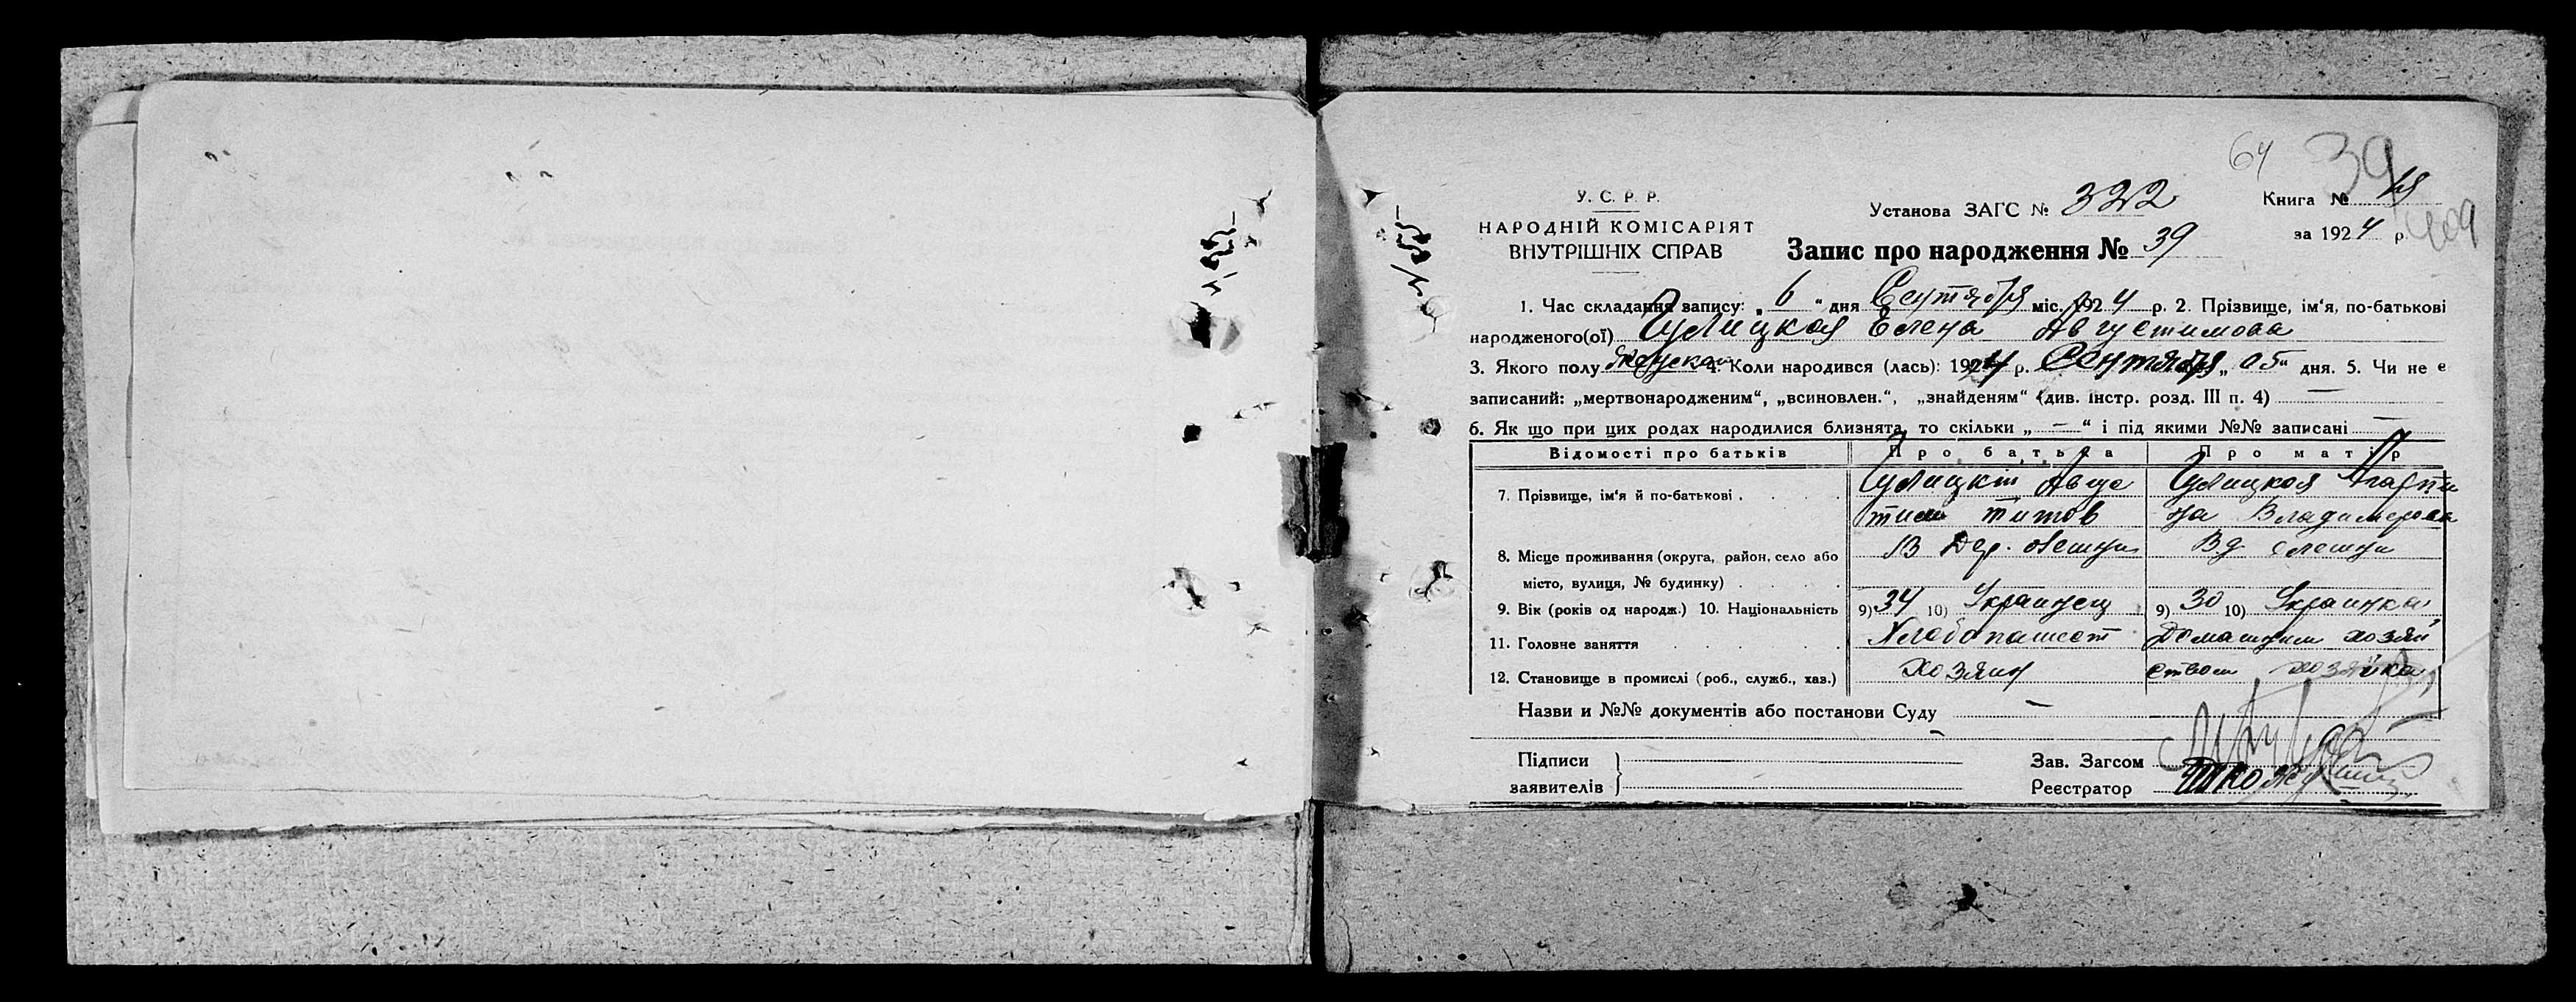 64 39
У. С. Р. Р.
НАРОДНІЙ КОМІСАРІЯТ
ВНУТРІШНІХ СПРАВ
Установа ЗАГС № 322
Книга №
за 1924 р.
409
Запис про народження № 39
1. Час складання запису: „ 6 “ дня Сентября міс. 1924 р. 2. Прізвище, ім‘я, по-батькові
народженого(ої) Гулицкая Елена Августимова
3. Якого полу женская 4. Коли народився (лась): 1924 р. Сентября „ 05 “ дня. 5. Чи не є
записаний: „мертвонародженим“, „всиновлен.“, „знайденям“ (див. інстр. розд. III п. 4) —
6. Як що при цих родах народилися близнята, то скільки „ — “ і під якими №№ записані —
Відомості про батьків Про батька Про матір
7. Прізвище, ім‘я й по-батькові . Гулицкий Авгус Гулицкая
тим титов на Владимерова
8. Місце проживання (округа, район, село або В Дер. В д.
місто, вулиця, № будинку)
9. Вік (років од народж.) 10. Національність 9) 34 10) Украинец 9) 30 10) Украинка
11. Головне заняття Хлебопашест Домашним хозяй
12. Становище в промислі (роб., служб., хаз.) хозяин ством хозяйка
Назви и №№ документів або постанови Суду —
Підписи
заявителів
Зав. Загсом
Реєстратор